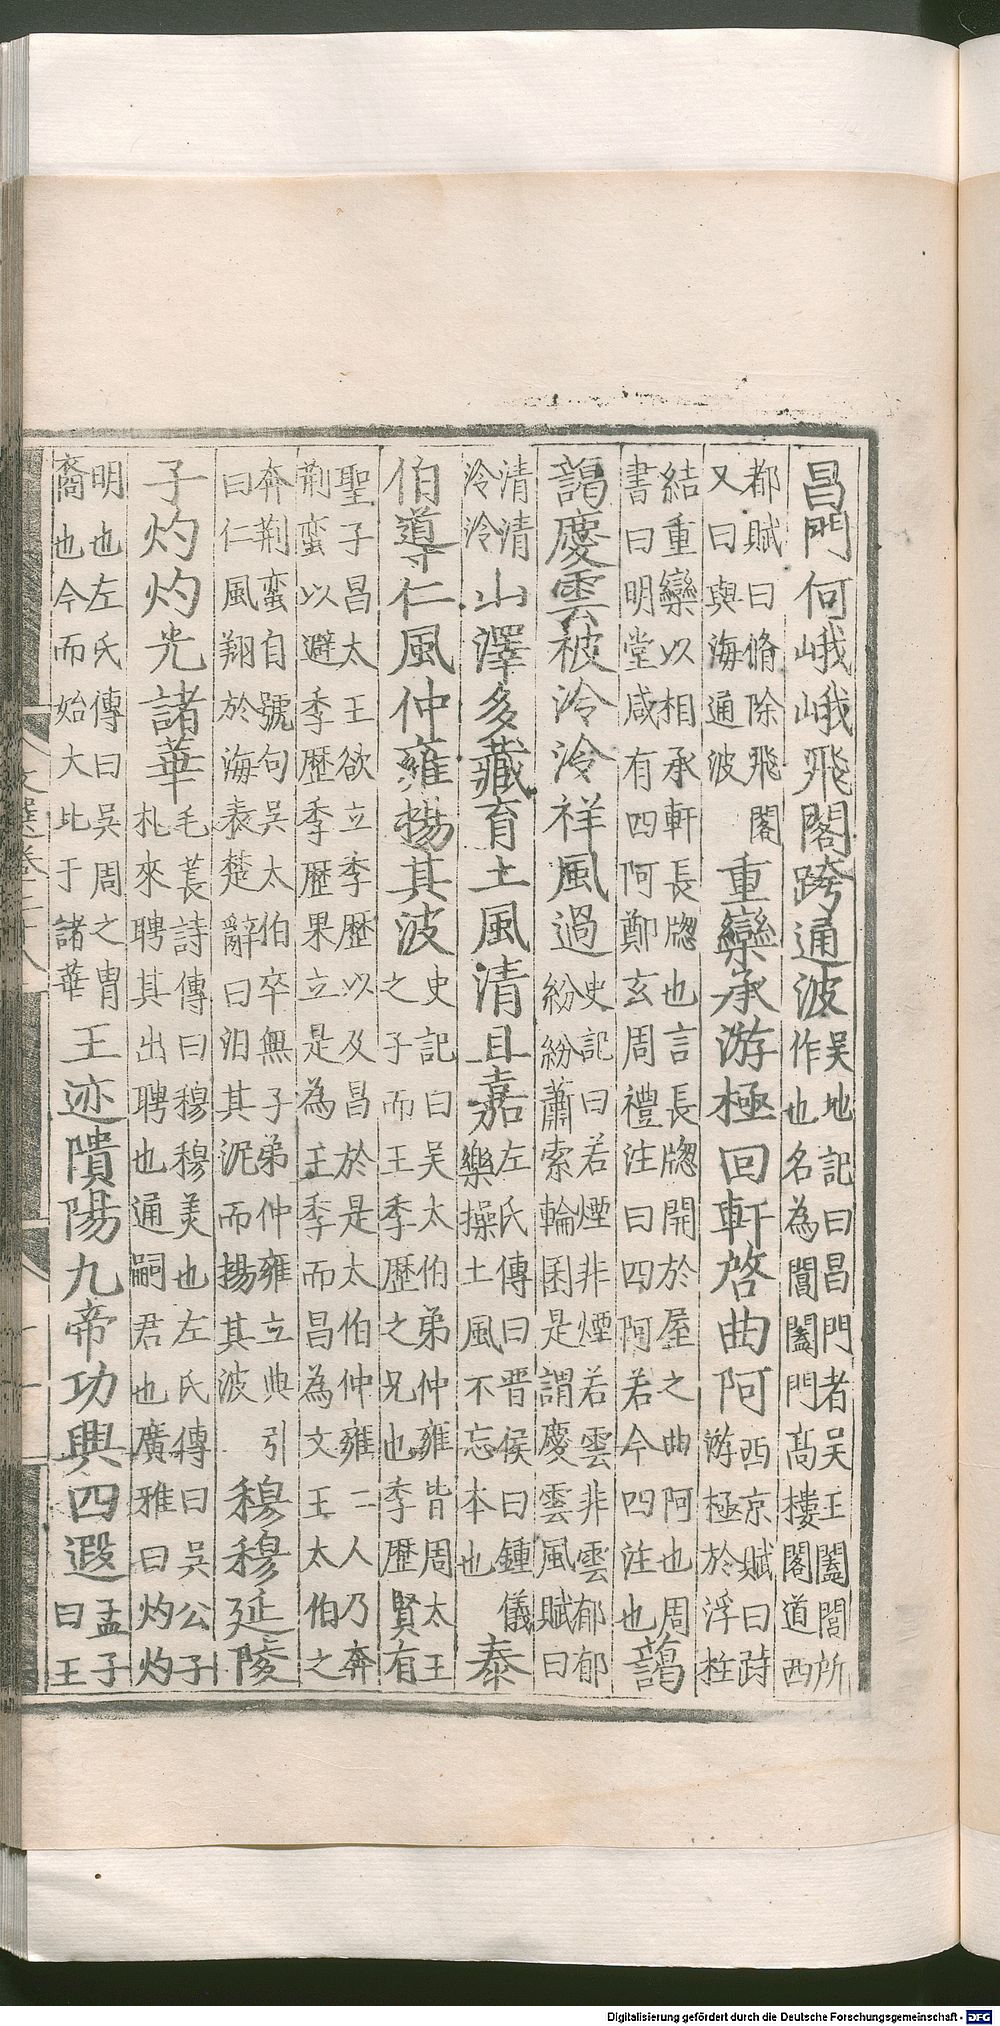 昌門何峨峨飛閣跨通波吳地記曰昌門者吳王闔閭所作也名為閶闔門高樓閣道西
都賦曰脩除飛閣又曰與海通波重欒承游極回軒啓曲阿西京賦曰跱游極於浮柱
結重欒以相承軒長牕也言長牕開於屋之曲阿也周書曰明堂咸有四阿鄭玄周禮注曰四阿若今四注也藹
藹慶雲被泠泠祥風過史記曰若煙非煙若雲非雲郁郁紛紛蕭索輪囷是謂慶雲風賦曰
清清泠泠山澤多藏育土風清且嘉左氏傳曰晋侯曰鍾儀樂操土風不忘本也泰
伯導仁風仲雍揚其波史記曰吳太伯弟仲雍皆周太王之子而王季歷之兄也季歷賢有
聖子昌太王欲立季歷以及昌於是太伯仲雍二人乃奔荆蛮以避季歷季歷果立是為王季而昌為文王太伯之
奔荆蛮自號句吳太伯卒無子弟仲雍立典引曰仁風翔於海表楚辭曰汩其泥而揚其波穆穆延陵
子灼灼光諸華毛萇詩傳曰穆穆美也左氏傳曰吳公子札來聘其出聘也通嗣君也廣雅曰灼灼
明也左氏傳曰吳周之胄裔也今而始大比于諸華王迹隤陽九帝功興四遐孟子曰王
文選卷二十八
Digitalisierung gefördert durch die Deutsche Forschungsgemeinschaft - DFG